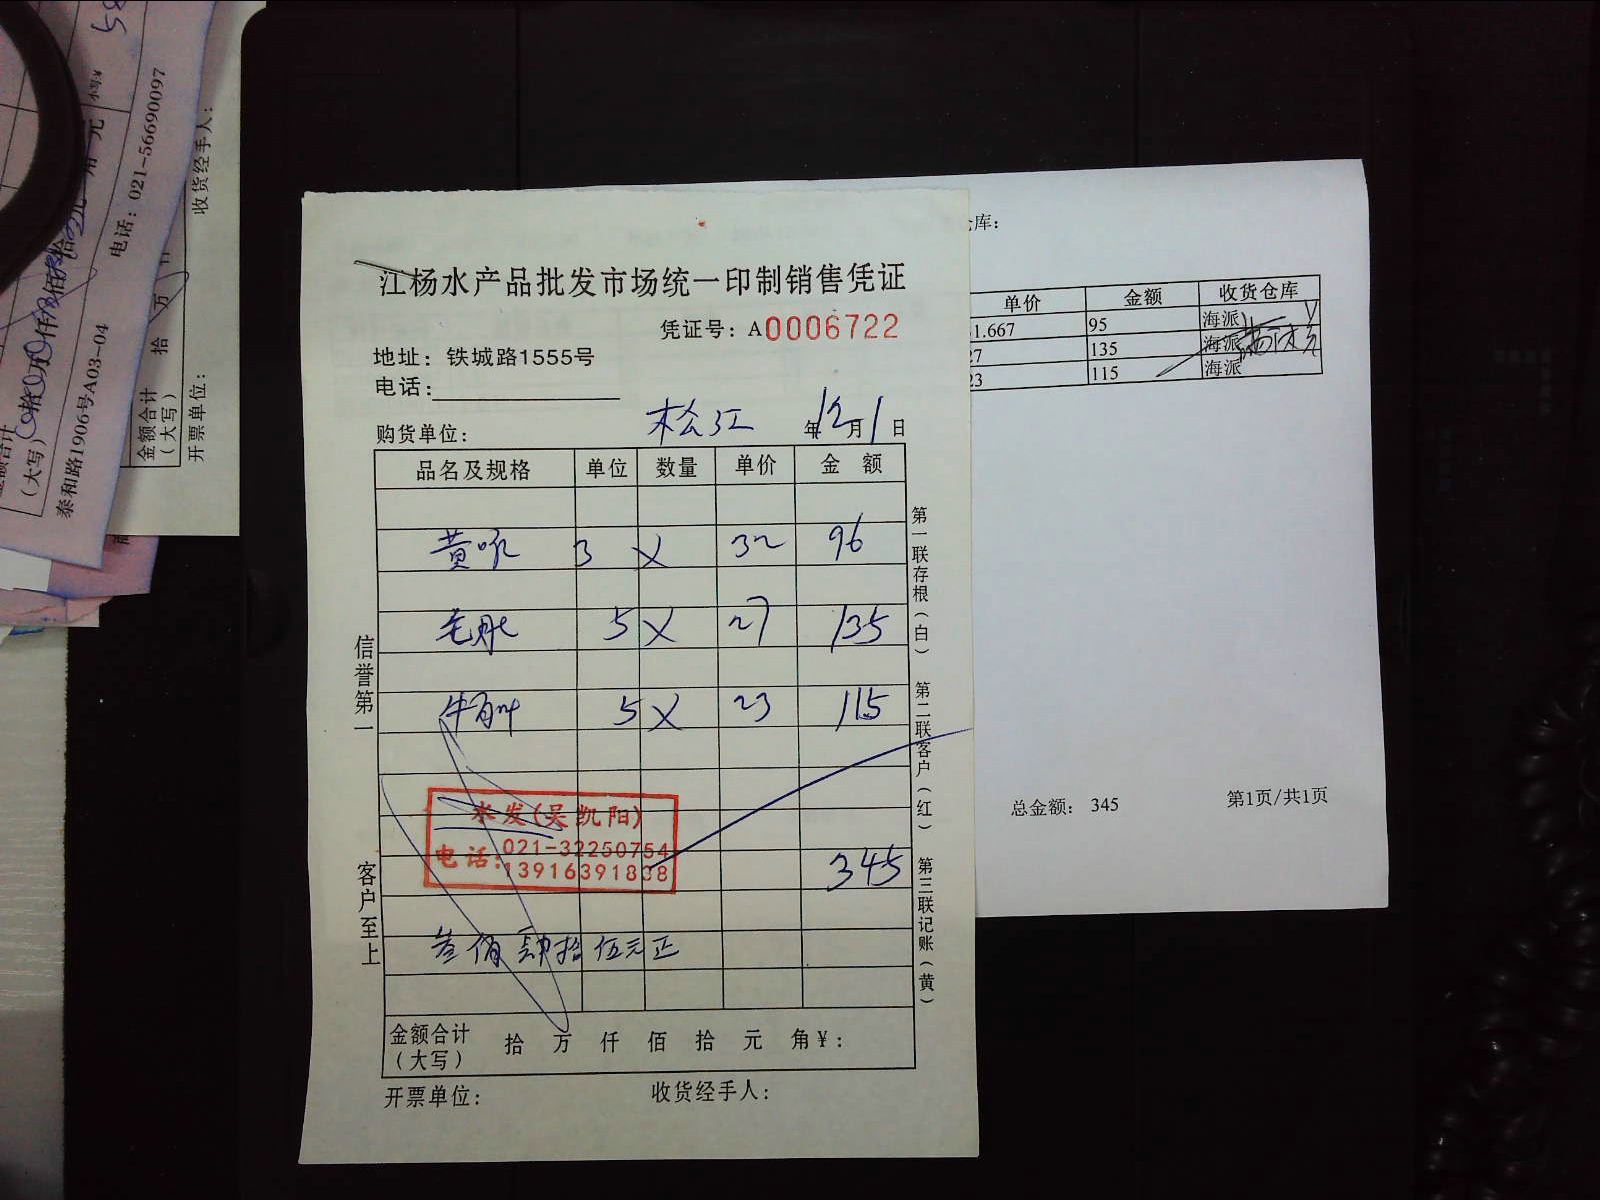 小写¥
元
电话: 021-56690097
收货经手人:
泰和路1906号A03-04
(大写)
金额合计
(大写)
拾 万
开票单位:
江杨水产品批发市场统一印制销售凭证
凭证号: A0006722
地址: 铁城路1555号
电话:
购货单位: 松江 年12月1日
品名及规格 单位 数量 单价 金 额
黄 3 X 32 96
毛 5 X 27 135
牛 5 X 23 115
水发(吴凯阳)
电话: 021-32250754
13916391838
345
叁佰肆拾伍元正
金额合计
(大写) 拾 万 仟 佰 拾 元 角¥:
开票单位: 收货经手人:
信誉第一
客户至上
第一联存根(白) 第二联客户(红) 第三联记账(黄)
库:
单价 金额 收货仓库
1.667 95 海派
27 135 海派
23 115 海派
总金额: 345 第1页/共1页